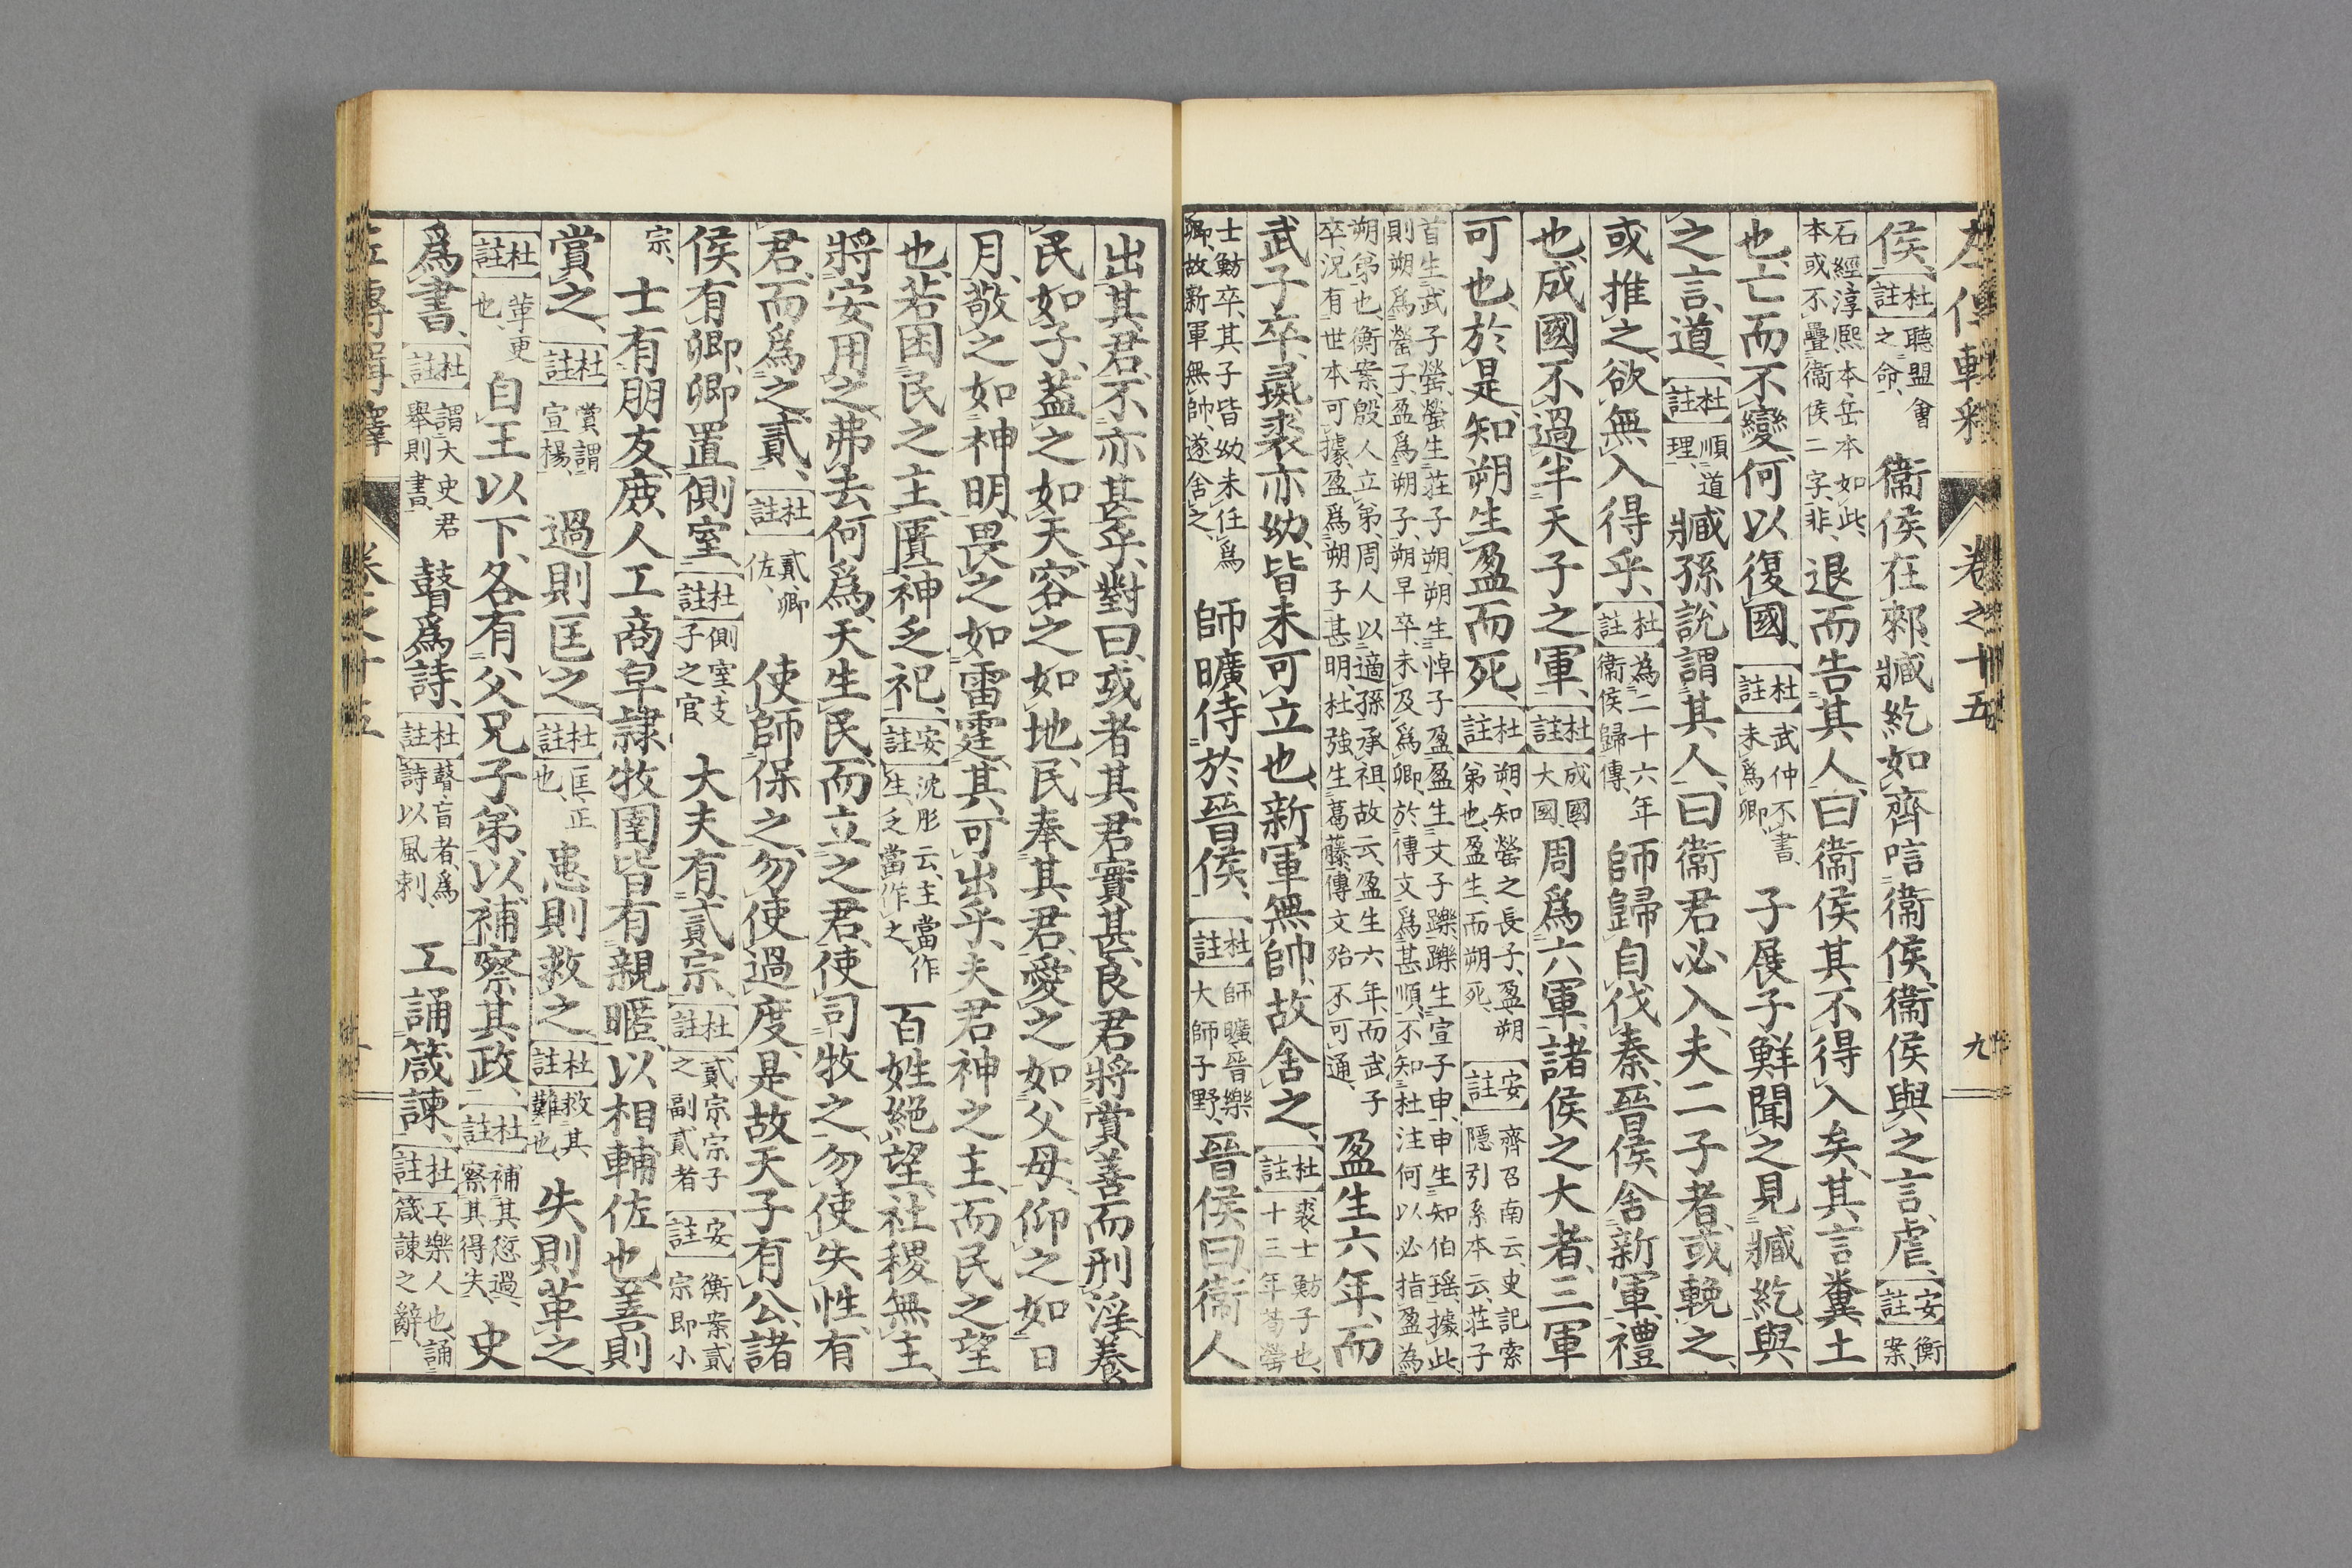 左傳輯釋 卷之十五 九
侯、杜註聽盟會之命、衞侯在郲、臧紇如齊唁衞侯、衞侯與之言、虐、安註衡案、
石經淳熙本岳本如此、本或不疊衞侯二字、非、退而告其人曰、衞侯其不得入矣、其言糞土
也、亡而不變、何以復國、杜註武仲不書、未爲卿、子展子鮮聞之、見臧紇、與
之言、道、杜註順道理、臧孫說、謂其人曰、衞君必入、夫二子者、或輓之、
或推之、欲無入得乎、杜註為二十六年衞侯歸傳、師歸自伐秦、晉侯舍新軍、禮
也、成國不過半天子之軍、杜註成國大國、周爲六軍、諸侯之大者、三軍
可也、於是知朔生盈而死、杜註朔、知罃之長子、盈朔弟也、盈生、而朔死、安註齊召南云、史記索隱引系本云、莊子
首生武子罃、罃生莊子朔、朔生悼子盈、盈生文子躒、躒生宣子申、申生知伯瑤、據此、則朔爲罃子、盈爲朔子、朔早卒未及爲卿、於傳文爲甚順、不知杜注何以必指盈為
朔弟也、衡案、殷人立弟、周人以適孫承祖、故云、盈生六年、而武子卒、況有世本可據、盈爲朔子甚明、杜強生葛藤、傳文殆不可通、盈生六年、而
武子卒、彘裘亦幼、皆未可立也、新軍無帥、故舍之、杜註裘士魴子也、十三年荀罃
士魴卒、其子皆幼、未任爲卿、故新軍無帥、遂舍之、師曠侍於晉侯、杜註師曠晉樂大師子野、晉侯曰、衞人
出其君、不亦甚乎、對曰、或者其君實甚、良君將賞善而刑淫、養
民如子、蓋之如天、容之如地、民奉其君、愛之如父母、仰之如日
月、敬之如神明、畏之如雷霆、其可出乎、夫君神之主、而民之望
也、若困民之主、匱神乏祀、安註沈彤云、主當作生、乏當作之、百姓絕望、社稷無主、
將安用之、弗去何爲、天生民而立之君、使司牧之、勿使失性、有
君、而爲之貳、杜註貳、卿佐、使師保之、勿使過度、是故天子有公、諸
侯有卿、卿置側室、杜註側室、支子之官、大夫有貳宗、杜註貳宗、宗子之副貳者、安註衡案貳宗即小
宗、士有朋友、庶人工商皁隷牧圉、皆有親暱、以相輔佐也、善則
賞之、杜註賞、謂宣揚、過則匡之、杜註匡、正也、患則救之、杜註救其難也、失則革之、
杜註革、更也、自王以下、各有父兄子弟、以補察其政、杜註補其愆過、察其得失、史
爲書、杜註謂大史君舉則書、瞽爲詩、杜註瞽、盲者、爲詩以風刺、工誦箴諫、杜註工、樂人也、誦箴諫之辭、
左傳輯釋 卷之十五